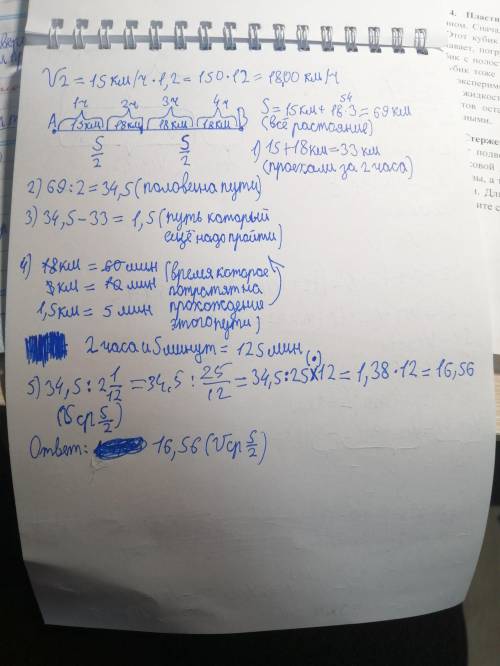 V2 = 15 км/ч · 1,2 = 150 · 12 = 1800 км/ч
1ч 2ч 3ч 4ч
A 15км 18км 18км 18км B
S/2 S/2
54
S = 15км + 18·3 = 69 км
(всё растояние)
1) 15 + 18км = 33 км
(проехали за 2 часа)
2) 69 : 2 = 34,5 (половина пути)
3) 34,5 - 33 = 1,5 (путь который
ещё надо пройти)
4) 18км = 60 мин (время которое
3км = 10 мин потратят на
1,5км = 5 мин прохождение
этого пути)
2 часа и 5 минут = 125 мин
(·)
5) 34,5 : 2 1/12 = 34,5 : 25/12 = 34,5 : 25 × 12 = 1,38 · 12 = 16,56
(Vср S/2)
Ответ: 16,56 (Vср S/2)
4. Пласти
ном. Снача
Этот кубик
вает, погр
бик с полос
убик тоже
эксперим
жидкост
тов остав
ными.
Стержен
подво
совой
мы, а т
1. Дли
ите с